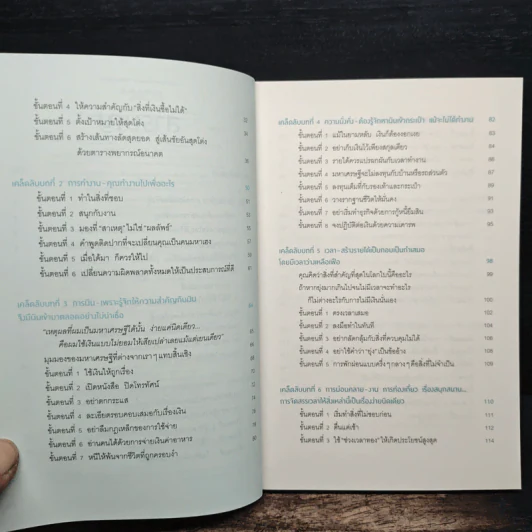 ขั้นตอนที่ 4 ให้ความสำคัญกับ"สิ่งที่เงินซื้อไม่ได้"
ขั้นตอนที่ 5 ตั้งเป้าหมายให้สุดโต่ง
ขั้นตอนที่ 6 สร้างเส้นทางลัดสุดยอด สู่เส้นชัยอันสุดโต่ง
ด้วยตารางพยากรณ์อนาคต
เคล็ดลับบทที่ 2 การทำงาน-คุณทำงานไปเพื่ออะไร
ขั้นตอนที่ 1 ทำในสิ่งที่ชอบ
ขั้นตอนที่ 2 สนุกกับงาน
ขั้นตอนที่ 3 มองที่ "สาเหตุ" ไม่ใช่ "ผลลัพธ์"
ขั้นตอนที่ 4 คำพูดติดปากที่จะเปลี่ยนคุณเป็นคนมหาเฮง
ขั้นตอนที่ 5 เมื่อได้มา ก็ควรให้ไป
ขั้นตอนที่ 6 เปลี่ยนความผิดพลาดทั้งหมดให้เป็นประสบการณ์ที่ดี
เคล็ดลับบทที่ 3 การเงิน-เพราะรู้จักให้ความสำคัญกับเงิน
จึงมีเงินเข้ามาตลอดอย่างไม่น่าเชื่อ
"เหตุผลที่ผมเป็นมหาเศรษฐีได้นั้น ง่ายแค่นิดเดียว...
คือผมใช้เงินแบบไม่ยอมให้เสียเปล่าเลยแม้แต่เยนเดียว"
มุมมองของมหาเศรษฐีที่ต่างจากเราๆ แทบสิ้นเชิง
ขั้นตอนที่ 1 ใช้เงินให้ถูกเรื่อง
ขั้นตอนที่ 2 เปิดหนังสือ ปิดโทรทัศน์
ขั้นตอนที่ 3 อย่าตกกระแส
ขั้นตอนที่ 4 ละเอียดรอบคอบเสมอกับเรื่องเงิน
ขั้นตอนที่ 5 อย่าลืมกฎเหล็กของการใช้จ่าย
ขั้นตอนที่ 6 อ่านคนได้ด้วยการจ่ายเงินค่าอาหาร
ขั้นตอนที่ 7 หนีให้พ้นจากชีวิตที่ถูกครอบงำ
เคล็ดลับบทที่ 4 ความมั่งคั่ง-ต้องรู้จักหาเงินเข้ากระเป๋า แม้จะไม่ได้ทำงาน 82
ขั้นตอนที่ 1 แม้ในยามหลับ เงินก็ต้องงอกเงย
ขั้นตอนที่ 2 อย่าเก็บเงินไว้เพียงสกุลเดียว
ขั้นตอนที่ 3 รายได้ควรแปรผกผันกับเวลาทำงาน
ขั้นตอนที่ 4 มหาเศรษฐีจะไม่ลงทุนกับบ้านหรือรถส่วนตัว
ขั้นตอนที่ 5 ลงทุนเต็มที่กับรองเท้าและกระเป๋า
ขั้นตอนที่ 6 วางรากฐานชีวิตให้มั่นคง
ขั้นตอนที่ 7 อย่าเริ่มทำธุรกิจด้วยการกู้หนี้ยืมสิน
ขั้นตอนที่ 8 จงปฏิบัติต่อเงินด้วยความเคารพ 95
เคล็ดลับบทที่ 5 เวลา-สร้างรายได้เป็นกอบเป็นกำเสมอ 98
โดยมีเวลาว่างเหลือเฟือ
คุณคิดว่าสิ่งที่สำคัญที่สุดในโลกใบนี้คืออะไร
ถ้าหากยุ่งมากเกินไปจนไม่มีเวลาจะทำอะไร
ก็ไม่ต่างอะไรกับการไม่มีเงินนั่นเอง
ขั้นตอนที่ 1 ตรงเวลาเสมอ
ขั้นตอนที่ 2 ลงมือทำในทันที
ขั้นตอนที่ 3 อย่ากลัดกลุ้มกับสิ่งที่ควบคุมไม่ได้
ขั้นตอนที่ 4 อย่าใช้คำว่า"ยุ่ง"เป็นข้ออ้าง
ขั้นตอนที่ 5 การพักผ่อนแบบครึ่งๆกลางๆคือสิ่งที่ไม่จำเป็น
เคล็ดลับบทที่ 6 การผ่อนคลาย-งาน การท่องเที่ยว เรื่องสนุกสนาน...
การจัดสรรเวลาให้สิ่งเหล่านี้เป็นเรื่องง่ายนิดเดียว 110
ขั้นตอนที่ 1 เริ่มทำสิ่งที่ไม่ชอบก่อน
ขั้นตอนที่ 2 ตื่นแต่เช้า
ขั้นตอนที่ 3 ใช้"ช่วงเวลาทอง"ให้เกิดประโยชน์สูงสุด 114